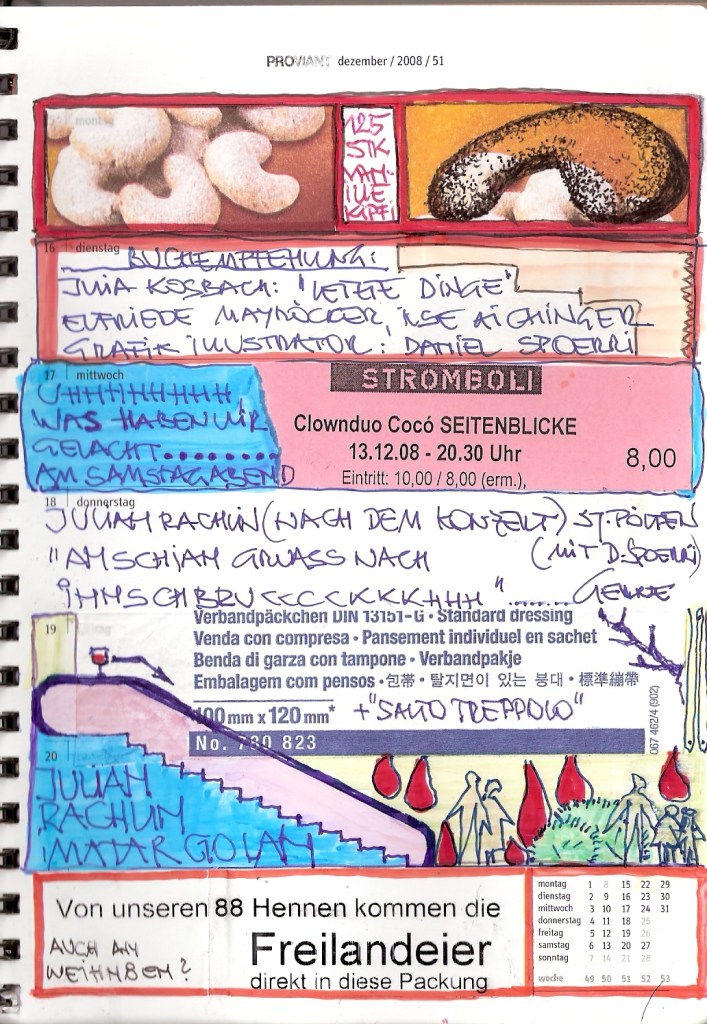 PROVIANT dezember / 2008 / 51
montag
125
STK
VAN
ILLE
KIPF
16 dienstag
BUCHEMPFEHLUNG:
JULIA KOSBACH: "LETZTE DINGE"
ELFRIEDE MAYRÖCKER, ILSE AICHINGER
GRAFIK ILLUSTRATOR: DANIEL SPOERRI
17 mittwoch
UHHHHHHHH,
WAS HABEN WIR
GELACHT..........
AM SAMSTAGABEND
STROMBOLI
Clownduo Cocó SEITENBLICKE
13.12.08 - 20.30 Uhr
8,00
Eintritt: 10,00 / 8,00 (erm.),
18 donnerstag
JULIAN RACHLIN (NACH DEM KONZERT) ST. PÖLTEN
"AMSCHIAH GRUASS NACH (MIT D. SPOERRI)
IHNSCHBRUCCCCKKKKHHH"........ GERNE
19
Verbandpäckchen DIN 13151-G · Standard dressing
Venda con compresa · Pansement individuel en sachet
Benda di garza con tampone · Verbandpakje
Embalagem com pensos · 包帯 · 탈지면이 있는 붕대 · 標準繃帶
100 mm x 120 mm* + "SALTO TREPPOLO"
No. 780 823
067 462/4 (902)
20
JULIAN
RACHLIN
MATAR GOLAN
Von unseren 88 Hennen kommen die
Freilandeier
direkt in diese Packung
AUCH AN
WEIHN8EN?
montag 1 8 15 22 29
dienstag 2 9 16 23 30
mittwoch 3 10 17 24 31
donnerstag 4 11 18 25
freitag 5 12 19 26
samstag 6 13 20 27
sonntag 7 14 21 28
woche 49 50 51 52 53